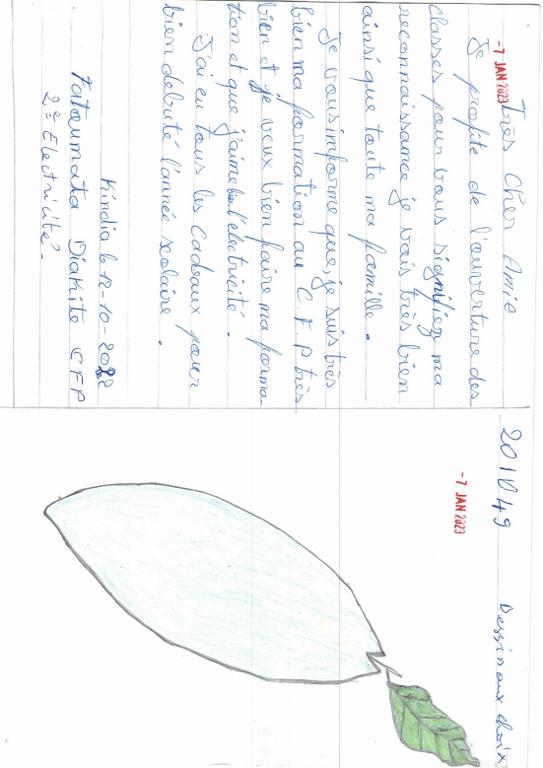 -7 JAN 2023
Très Cher Amie
Je profite de l'ouverture des
classes pour vous signifiez ma
reconnaissance je vais très bien
ainsi que toute ma famille.
Je vous informe que, je suis très
bien ma formation au C.F.P très
bien et je veux bien faire ma forma-
tion et que j'aime bien l'électricité.
J'ai eu tous les cadeaux pour
bien debuté l'année scolaire.
Kindia le 12-10-2022
Fatoumata Diakite CFP
2e Electricité.
201049 Dessin aux choix
-7 JAN 2023